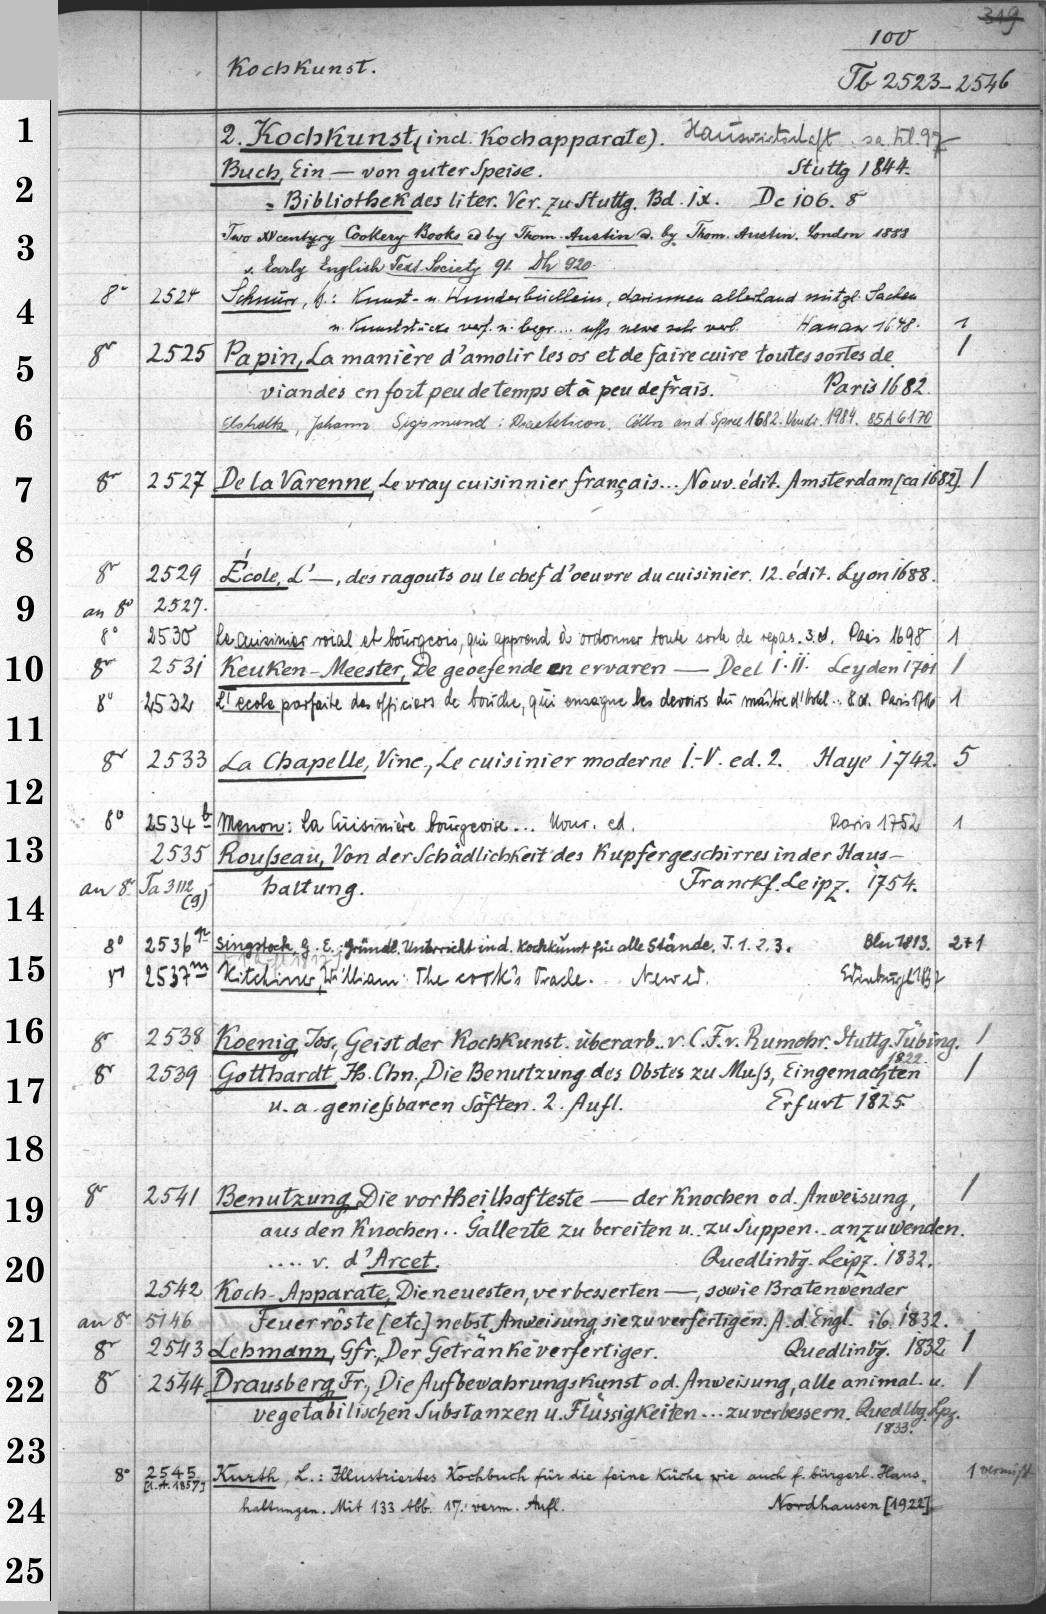 319
100
Kochkunst.
Tb 2523-2546
1
2. Kochkunst (incl. Kochapparate). Hauswirtschaft s.a. Kl. 97
Buch, Ein — von guter Speise. Stuttg 1844.
2
= Bibliothek des liter. Ver. zu Stuttg. Bd. ix. Dc i06. 8
Two XV century Cookery-Books ed by Thom. Austin. London 1888
3
v. Early English Text Society 91. Dh 920
8° 2524 Schnurr, B.: Kunst- u. Wunderbüchlein, darinnen allerhand nützl. Sachen
4
u. Kunststücke verf. u. begr... uffs newe sehr verb. Hanau 1648. 1
8° 2525 Papin, La manière d'amolir les os et de faire cuire toutes sortes de 1
5
viandes en fort peu de temps et à peu de frais. Paris 1682.
6
Elsholtz, Johann Sigismund: Diaeteticon. Cölln an d. Spree 1682. Neudr. 1984. 85A6170
7
8° 2527 De la Varenne, Le vray cuisinnier français... Nouv. édit. Amsterdam [ca 1682]. 1
8
8° 2529 École, L'—, des ragouts ou le chef d'oeuvre du cuisinier. 12. édit. Lyon 1688.
9
an 8° 2527.
8° 2530 Le cuisinier roial et bourgeois, qui apprend à ordonner toute sorte de repas. 3. éd. Paris 1698 1
10
8° 2531 Keuken-Meester, De geoefende en ervaren — Deel I.II. Leyden 1701 1
8° 2532 L'école parfaite des officiers de bouche, qui enseigne les devoirs du maître d'hôtel.. 8. éd. Paris 1716 1
11
8° 2533 La Chapelle, Vinc., Le cuisinier moderne I.-V. ed. 2. Haye 1742. 5
12
8° 2534 b Menon: La Cuisinière bourgeoise... Nouv. ed. Paris 1752 1
13
2535 Rousseau, Von der Schädlichkeit des Kupfergeschirres in der Haus-
an 8° Ta 3112 (9) haltung. Franckf. Leipz. 1754.
14
8° 2536 n Singstock, G. E.: Gründl. Unterricht in d. Kochkunst für alle Stände. T. 1. 2. 3. Bln 1813. 2+1
15
8° 2537 m Kitchiner, William: The cook's Oracle. New ed. Edinburgh 1827
16
8° 2538 Koenig, Jos., Geist der Kochkunst. überarb.. v. C. F. v. Rumohr. Stuttg. Tübing. 1822. 1
8° 2539 Gotthardt, Th. Chn., Die Benutzung des Obstes zu Muß, Eingemachten 1
17
u. a. genießbaren Säften. 2. Aufl. Erfurt 1825.
18
8° 2541 Benutzung, Die vortheilhafteste — der Knochen od. Anweisung, 1
19
aus den Knochen.. Gallerte zu bereiten u. zu Suppen.. anzuwenden.
.... v. d'Arcet. Quedlinbg. Leipz. 1832.
20
2542 Koch-Apparate, Die neuesten, verbesserten —, sowie Bratenwender
an 8° 5146 Feuerröste [etc] nebst Anweisung, sie zu verfertigen. A. d. Engl. ib. 1832.
21
8° 2543 Lehmann, Gfr., Der Getränkeverfertiger. Quedlinbg. 1832 1
8° 2544 Drausberg, Fr., Die Aufbewahrungskunst od. Anweisung, alle animal. u. 1
22
vegetabilischen Substanzen u. Flüssigkeiten... zu verbessern. Quedlbg. Lpz. 1833.
23
8° 2545 [1.A.1857] Kurth, L.: Illustriertes Kochbuch für die feine Küche wie auch f. bürgerl. Haus- 1 vermißt
24
haltungen. Mit 133 Abb. 17. verm. Aufl. Nordhausen [1922].
25